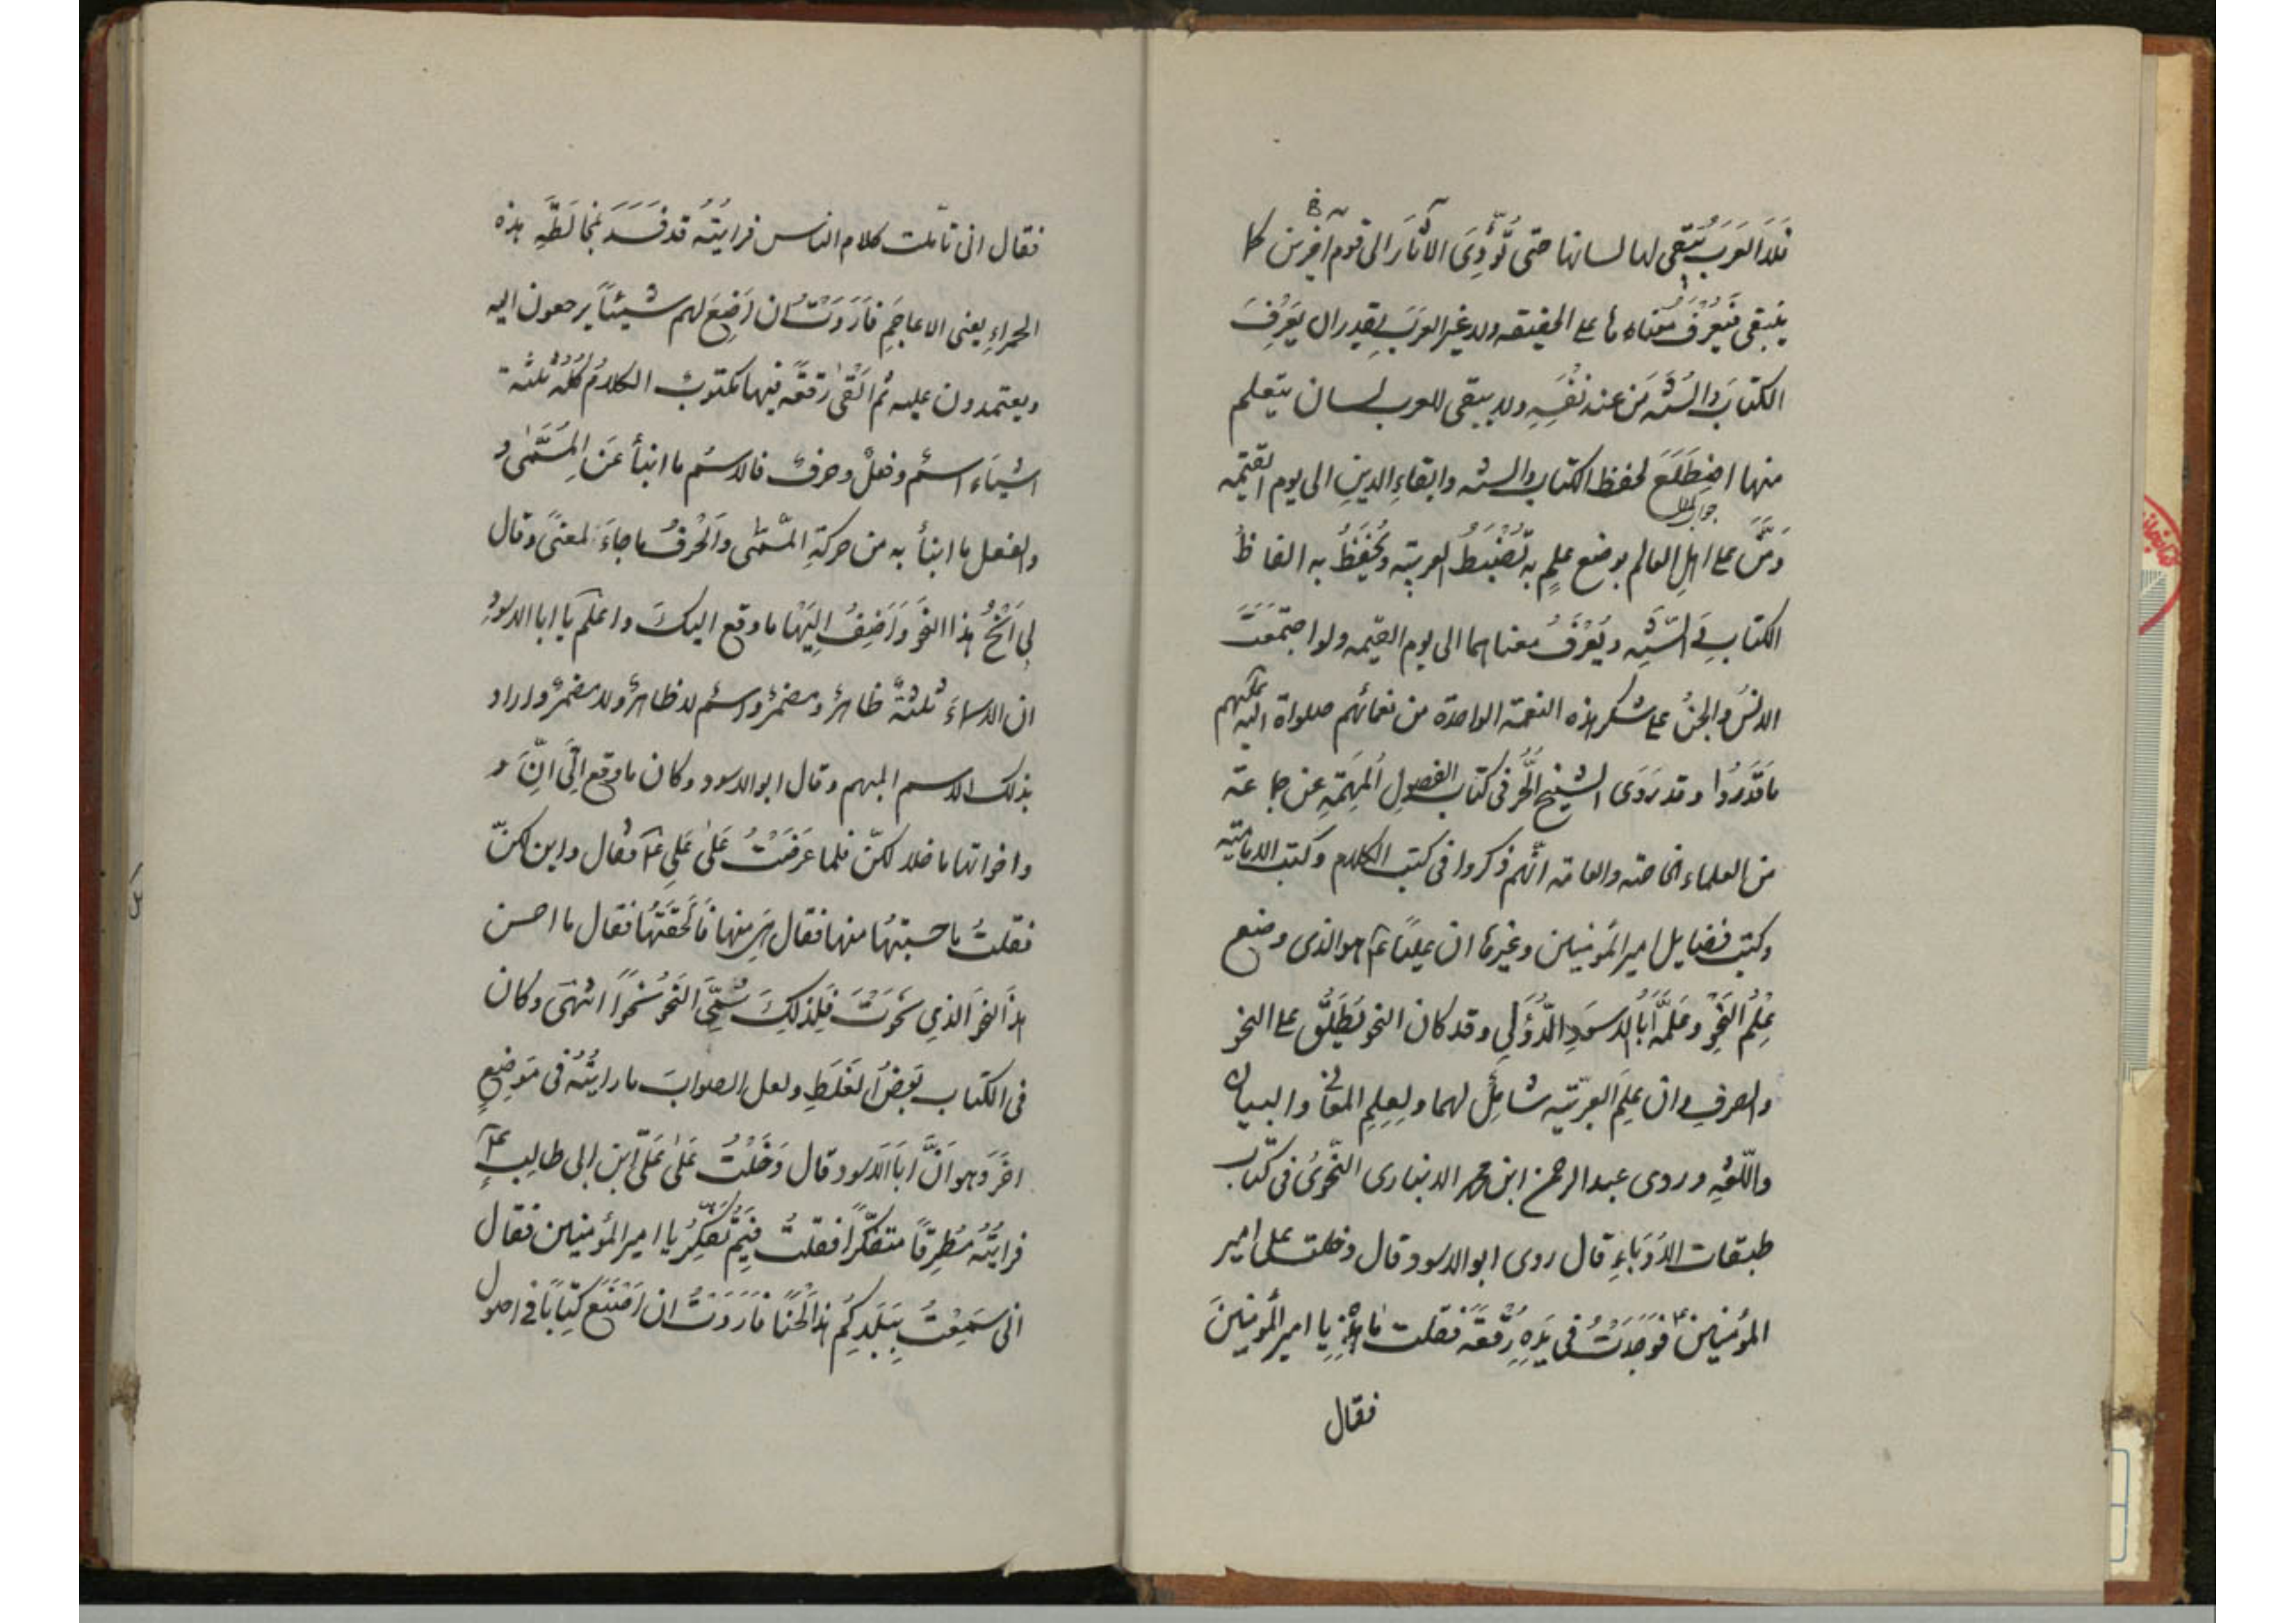 فلا العَرَبُ يَبْقى لها لسانها حتى تُؤَدِّىَ الآثارَ الى قومٍ آخرين كما
ينبغى فيُعْرَفُ معناه ما على الحقيقه ولا غير العَرَبِ يقدر ان يَعْرِفَ
الكتابَ والسُنّه مَن عند نَفْسِهِ ولا يبقى للعرب لسان يتعلم
منها اضطَلَعَ لحفظ الكتاب والسنه وابقاءِ الدينِ الى يوم القيٰمه
جواب لمّا
وَمَنَّ على اهلِ العالم بوضع علمٍ به تُضْبَطُ العربيّه ويُحْفَظُ به الفاظ
الكتاب والسّنّه ويُعْرَفُ معناهما الى يوم القيٰمه ولو اجتمَعَتْ
الانسُ والجنُ على شكر هذه النعمة الواحدة من نعمائهم صلواة الله عليهم
ما قَدَرُوا وقد رَوَى الشيخ الحُرّ فى كتاب الفصولِ المُهِمّةِ عن جماعة
من العلماء الخاصّه والعامّه انّهم ذكروا فى كتب الكلام وكتب الامامتيه
وكتب فضايل امير المؤمنين وغيرها ان عليًا ع هو الذى وضع
عِلْمَ النَحْوِ وعَلَّمَه أبَا الاسوَدِ الدُّؤَلى وقد كان النحو يُطْلَقُ على النحو
والصرفِ وان عِلمَ العربيّه شامِلٌ لهما ولِعلِمِ المعانى والبيان
واللّغهِ وروى عبد الرحمن ابن محمد الانبارى النَحْوِىُ فى كتاب
طبقات الاُدَباءِ قال روى ابو الاسود قال دخلت على امير
المؤمنين ع فوَجَدْتُ فى يَدِهِ رُقْعَةً فَقلت ما هٰذِهِ يا امير المؤمنينَ
فقال
فقال انى تامّلت كلام الناس فرايتُهُ قد فَسَدَ بمخالَطَةِ هذه
الحمراءِ يعنى الاعاجِمِ فاَرَدْتُ ان اَضَعَ لهم شيئًا يرجعون اليه
ويعتمدون عليه ثم اَلْقىٰ رُقعَةً فيها مكتوبٌ الكلامُ كُلُّهُ ثلثة
اشياءَ اسمٌ وفعلٌ وحرفٌ فالاسمُ ما انبأ عَنِ المُسَمّىٰ و
والفعل ما انبأ به من حركةِ المسَمّى والحَرْفُ ما جاءَ لمعنًى وقال
لى اُنْحُ هذا النَحْوَ وَاَضِفْ اِلَيْها ما وقع اليكَ واعلَم يا ابا الاسودِ
ان الاسماءَ ثلثةٌ ظاهرٌ ومضمرٌ واسمٌ لا ظاهرٌ ولا مضمرٌ واراد
بذلك الاسم المبهم وقال ابو الاسود وكان ما وقع اِلَىَّ اِنَّ و
واخواتها ما خلا لكنّ فلما عَرَضْتُ عَلىٰ عَلىٍ ع فقال واين لكنّ
فقلتُ ما حسبتُها منها فقال هى منها فاَلْحَقَتُها فقال ما احسن
هذا النحوَ الذى نَحَوْتَ فَلِذلِكَ سُمِّىَ النَحْوُ نَحْوًا انتهى وكان
فى الكتاب بَعضُ الغَلَطِ ولعل الصوابَ ما رايتُهُ فى مَوضِعٍ
اخَرَ وهو انَّ ابا الاَسود قال دَخَلْتُ عَلىٰ عَلىِّ ابن ابى طالبٍ ع
فرايتُهُ مُطرِقًا متفكّرًا فقلتُ فِيمَ تُفَكِّرُ يا امير المؤمنين فقال
انى سَمِعْتُ بِبَلَدِكُم هذا لَحْنًا فاَرَدْتُ ان اَصْنَعَ كِتابًا فى اصول